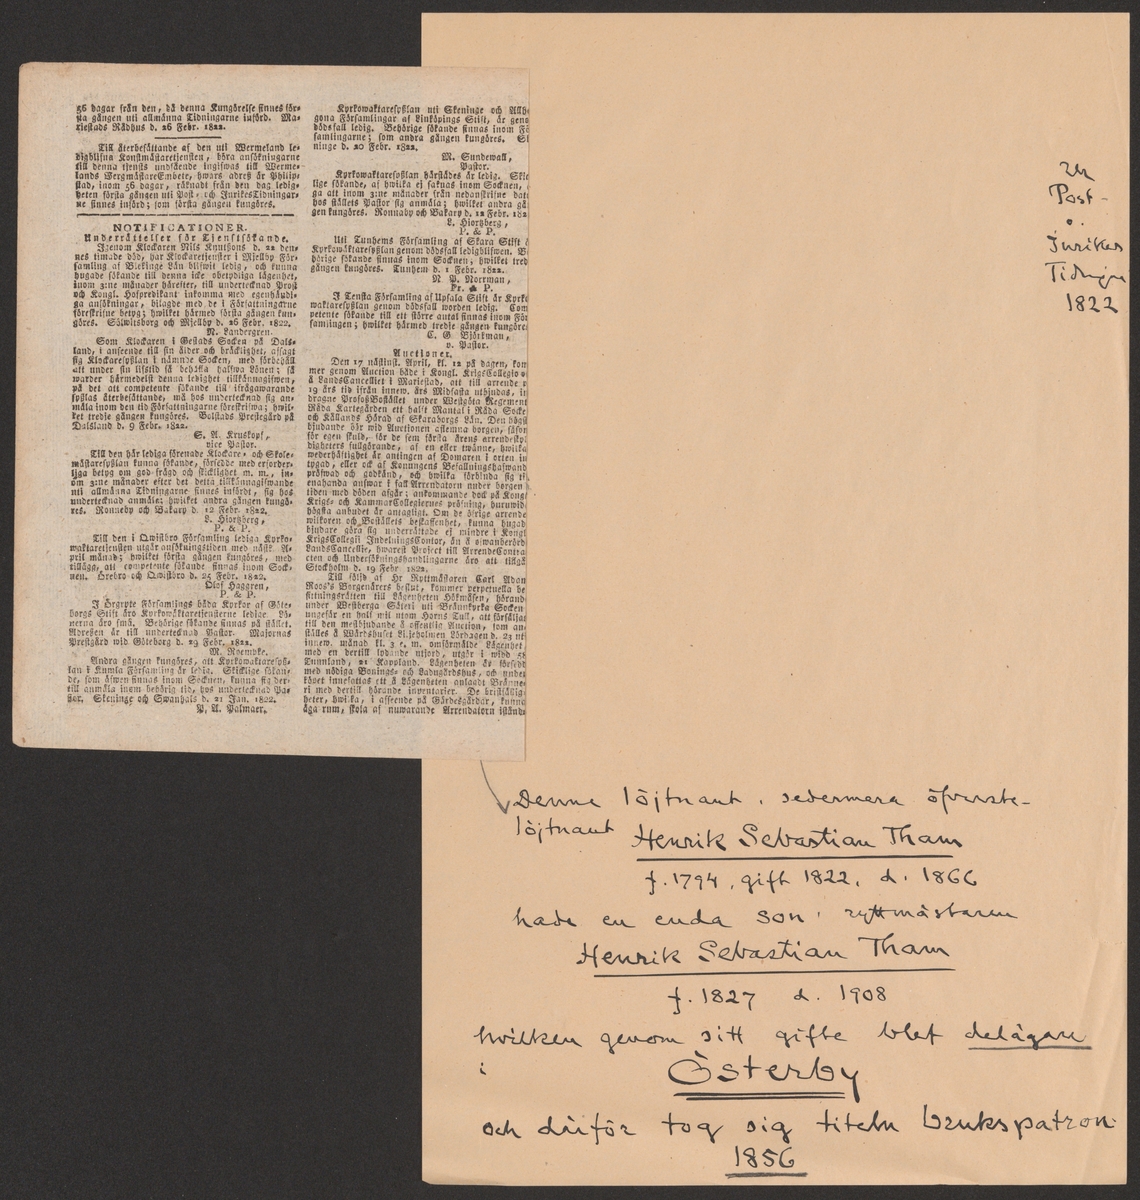 56 dagar från den, då denna Kungörelse finnes för-
sta gången uti allmänna Tidningarne införd. Ma-
riestads Rådhus d. 26 Febr. 1822.
Till återbesättande af den uti Wermeland le-
digblifna Konstmästaretjensten, böra ansökningarne
till denna tjensts undfående ingifwas till Werme-
lands BergmästareEmbete, hwars adreß är Philip-
stad, inom 56 dagar, räknadt från den dag ledig-
heten första gången uti Post- och InrikesTidningar-
ne finnes införd; som första gången kungöres.
NOTIFICATIONER.
Underrättelser för Tjenstsökande.
Igenom Klockaren Nils Knutsons d. 22 den-
nes timade död, har Klockaretjensten i Mjellby För-
samling af Blekinge Län blifwit ledig, och kunna
hugade sökande till denna icke obetydliga lägenhet,
inom 3:ne månader härefter, till undertecknad Prost
och Kongl. Hofpredikant inkomma med egenhändi-
ga ansökningar, bilagde med de i Författningarne
föreskrifne betyg; hwilket härmed första gången kun-
göres. Sölwitsborg och Mjellby d. 26 Febr. 1822.
N. Landergren.
Som Klockaren i Gestads Socken på Dals-
land, i anseende till sin ålder och bräcklighet, afsagt
sig Klockaresyßlan i nämnde Socken, med förbehåll
att under sin lifstid få behålla halfwa Lönen; så
warder härmedelst denna ledighet tillkännagifwen,
på det att competente sökande till ifrågawarande
syßlas återbesättande, må hos undertecknad sig an-
mäla inom den tid Författningarne föreskrifwa; hwil-
ket tredje gången kungöres. Bolstads Prestegård på
Dalsland d. 9 Febr. 1822.
S. A. Kruskopf,
vice Pastor.
Till den här lediga förenade Klockare- och Skole-
mästaresyßlan kunna sökande, försedde med erforder-
liga betyg om god frägd och skicklighet m. m., in-
om 3:ne månader efter det detta tillkännagifwande
uti allmänna Tidningarne finnes infördt, sig hos
undertecknad anmäla; hwilket andra gången kungö-
res. Ronneby och Bakaryd d. 12 Febr. 1822.
L. Hjortzberg,
P. & P.
Till den i Qwistbro Församling lediga Kyrko-
waktaretjensten utgår ansökningstiden med nästk. A-
pril månad; hwilket första gången kungöres, med
tillägg, att competente sökande finnas inom Sock-
nen. Örebro och Qwistbro d. 25 Febr. 1822.
Olof Haggren,
P. & P.
I Örgryte Församlings båda Kyrkor af Göte-
borgs Stift äro Kyrkowaktaretjensterne ledige. Lö-
nerna äro små. Behörige sökande finnas på stället.
Adreßen är till undertecknad Pastor. Majornas
Prestgård wid Götheborg d. 29 Febr. 1822.
M. Roempke.
Andra gången kungöres, att Kyrkowaktaresyß-
lan i Kumla Församling är ledig. Skicklige sökan-
de, som äfwen finnas inom Socknen, kunna sig der-
till anmäla inom behörig tid, hos undertecknad Pa-
stor. Skeninge och Swanhals d. 21 Jan. 1822.
P. A. Palmær.
Kyrkowaktaresyßlan uti Skeninge och Allhe
gona Församlingar af Linköpings Stift, är geno
dödsfall ledig. Behörige sökande finnas inom Fö
samlingarne; som andra gången kungöres. Sk
ninge d. 20 Febr. 1822.
M. Sundewall,
Pastor.
Kyrkowaktaresyßlan härstädes är ledig. Skic
lige sökande, af hwilka ej saknas inom Socknen,
ga att inom 3:ne månader från nedanskrifne dato
hos ställets Pastor sig anmäla; hwilket andra gån
gen kungöres. Ronneby och Bakaryd d. 12 Febr. 182
L. Hjortzberg,
P. & P.
Uti Tunhems Församling af Skara Stift ä
Kyrkowaktaresyßlan genom dödsfall ledigblifwen. Be
hörige sökande finnas inom Socknen; hwilket tred
gången kungöres. Tunhem d. 1 Febr. 1822.
N. P. Norrman,
Pr. & P.
I Tensta Församling af Upsala Stift är Kyrko
waktaresyßlan genom dödsfall worden ledig. Com
petente sökande till ett större antal finnas inom För
samlingen; hwilket härmed tredje gången kungöres
C. G. Björkman,
v. Pastor.
Auctioner.
Den 17 nästinst. April, kl. 12 på dagen, kom
mer genom Auction både i Kongl. KrigsCollegio o
å LandsCancelliet i Mariestad, att till arrende p
19 års tid ifrån innew. års Midfasta utbjudas, in
dragne ProfoßBostället under Westgöta Regement
Råda Karlegården ett halft Mantal i Råda Socke
och Kållands Härad af Skaraborgs Län. Den högst
bjudande bör wid Auctionen aflemna borgen, såsom
för egen skuld, för de fem första årens arrendesky
digheters fullgörande, af en eller twänne, hwilka
wederhäftighet är antingen af Domaren i orten in
tygad, eller ock af Konungens Befallningshafwand
pröfwad och godkänd, och hwilka förbinda sig ti
enahanda answar i fall Arrendatorn under borgen
tiden med döden afgår; ankommande dock på Kong
Krigs- och KammarCollegiernes pröfning, huruwid
högsta anbudet är antagligt. Om de öfrige arrende
wilkoren och Boställets beskaffenhet, kunna hugad
bjudare göra sig underrättade ej mindre i Kongl
KrigsCollegii IndelningsContor, än å ofwanberörd
LandsCancellie, hwarest Project till ArrendeContra
cten och Undersökningshandlingarne äro att tillgå
Stockholm d. 19 Febr 1822.
Till följd af Hr Ryttmästaren Carl Adam
Roos's Borgenärers beslut, kommer perpetuella be
sittningsrätten till Lägenheten Hökmosen, hörande
under Westberga Säteri uti Brännkyrka Socken
ungefär en half mil utom Horns Tull, att försäljas
till den mestbjudande å offentlig Auction, som an
ställes å Wärdshuset Liljeholmen Lördagen d. 23 uti
innew. månad kl. 3 e. m. omförmälde Lägenhet
med en dertill lydande utjord, utgör i widd 58
Tunnland, 21 Kappland. Lägenheten är försedd
med nödiga Bonings- och Ladugårdshus, och under
köpet innefattas ett å Lägenheten anlagdt Bränne
ri med dertill hörande inventarier. De bristfällig
heter, hwilka, i afseende på Gärdesgårdar, kunna
äga rum, skola af nuwarande Arrendatorn istånd
ur
Post-
o.
Inrikes
Tidningar
1822
Denne löjtnant, sedermera öfverste-
löjtnant Henrik Sebastian Tham
f. 1794, gift 1822, d. 1866
hade en enda son, ryttmästaren
Henrik Sebastian Tham
f. 1827 d. 1908
hvilken genom sitt gifte blef delägare
i Österby
och därför tog sig titeln brukspatron.
1856